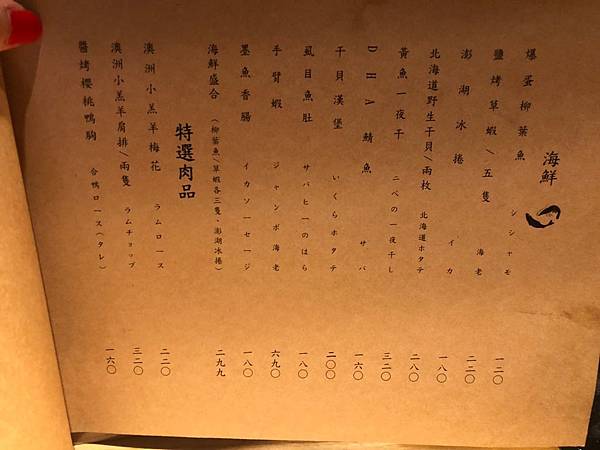 海鮮
爆蛋柳葉魚 シシャモ 一二〇
鹽烤草蝦/五隻 海老 二二〇
澎湖冰捲 イカ 一八〇
北海道野生干貝/兩枚 北海道ホタテ 二八〇
黃魚一夜干 ニベの一夜干し 三二〇
DHA鯖魚 サバ 一六〇
干貝漢堡 いくらホタテ 二〇〇
虱目魚肚 サバヒーのはら 一八〇
手臂蝦 ジャンボ海老 六九〇
墨魚香腸 イカソーセージ 一八〇
海鮮盛合(柳葉魚/草蝦各三隻、澎湖冰捲) 二九九
特選肉品
澳洲小羔羊梅花 ラムロース 二二〇
澳洲小羔羊肩排/兩隻 ラムチョップ 三二〇
醬烤櫻桃鴨胸 合鴨ロース(タレ) 一六〇